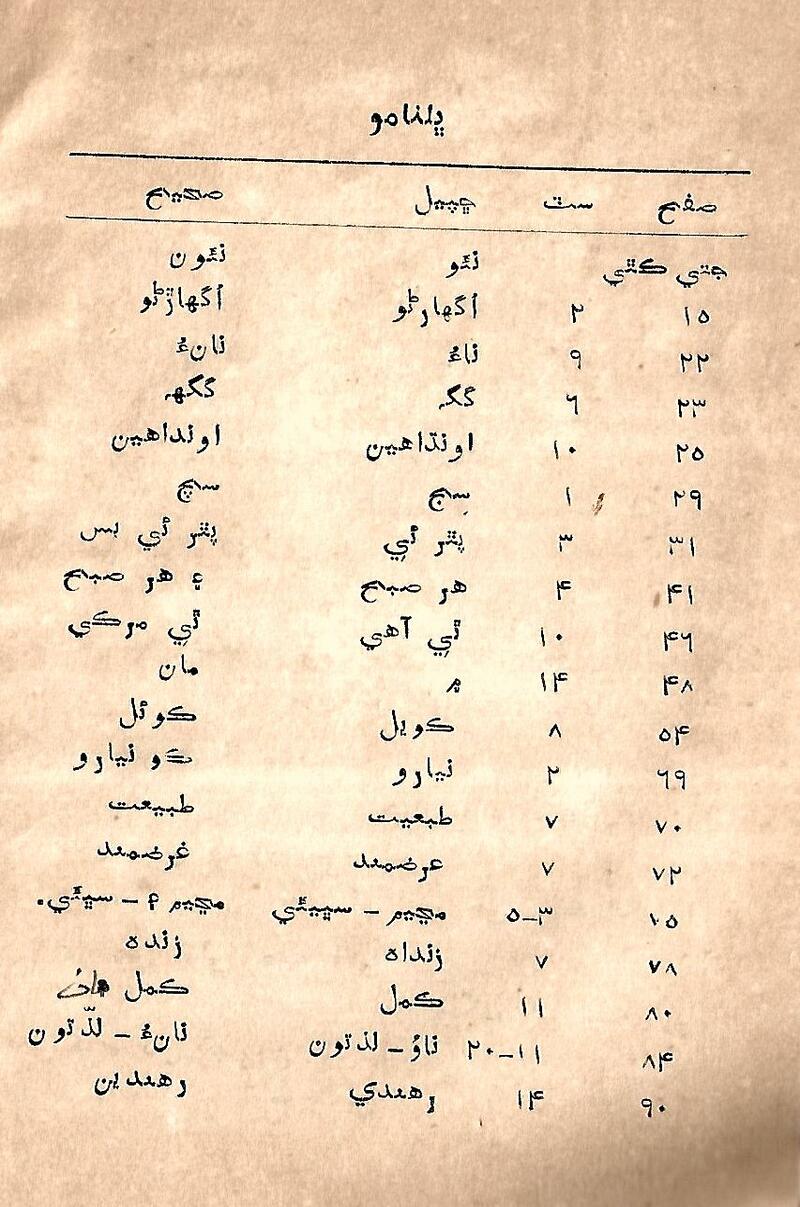 ڀلنامو
صفح ست ڇپيل صحيح
جتي ڪٿي نٿو نٿون
۱۵ ۲ اُگهارڻو اُگهاڙڻو
۲۲ ۹ ناءُ نانءُ
۲۳ ٦ گگہ گگھہ
۲۵ ۱۰ اونڌاهين اونداهين
۲۹ ۱ سِج سچ
۳۱ ۳ پٿر ئي پٿر ئي بس
۴۱ ۴ هر صبح ۽ هر صبح
۴٦ ۱۰ ٿي آهي ٿي مرڪي
۴۸ ۱۴ ۾ مان
۵۴ ۸ ڪويل ڪوئل
٦۹ ۲ نيارو ڪو نيارو
۷۰ ۷ طبعيت طبيعت
۷۲ ۷ عرضمند غرضمند
۷۵ ۳-۵ مڇيم - سڀيئي مڇيم ۾ - سڀئي.
۷۸ ۷ زنداه زنده
۸۰ ۱۱ ڪمل ڪمل
۸۴ ۱۱-۲۰ ناؤ - لذتون نانءُ - لذّتون
۹۰ ۱۴ رهندي رهندين